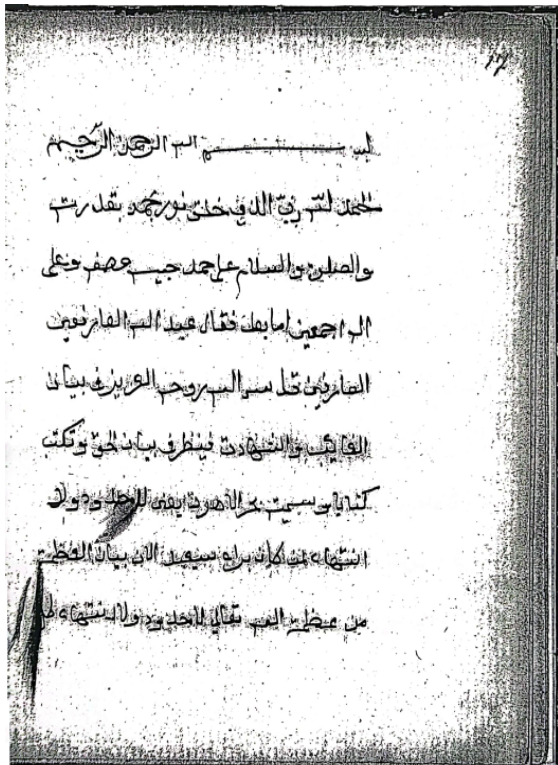 17
بسم الله الرحمن الرحيم
الحمد لله ربّ الذي خلق نور محمد بقدرته
والصلوة والسلام على محمد حبيب وعلى
اله اجمعين اما بعد فقال عبد الله العارفين
قدس الله روحه العزيز في بيان
الغائب والشهادة فينظر في بيان الحق وتكتب
كتابا وسميت بحر الاهوت يعنى لا حد ولا
انتهاء من كان بيان العظمة
من عظمة الله تعالى لا حدود ولا انتهاء لها